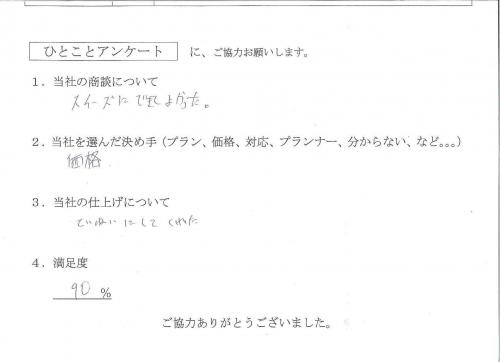 ひとことアンケート に、ご協力お願いします。
1．当社の商談について
スムーズにできてよかった。
2．当社を選んだ決め手（プラン、価格、対応、プランナー、分からない、など。。。）
価格
3．当社の仕上げについて
ていねいにしてくれた
4．満足度
90 %
ご協力ありがとうございました。